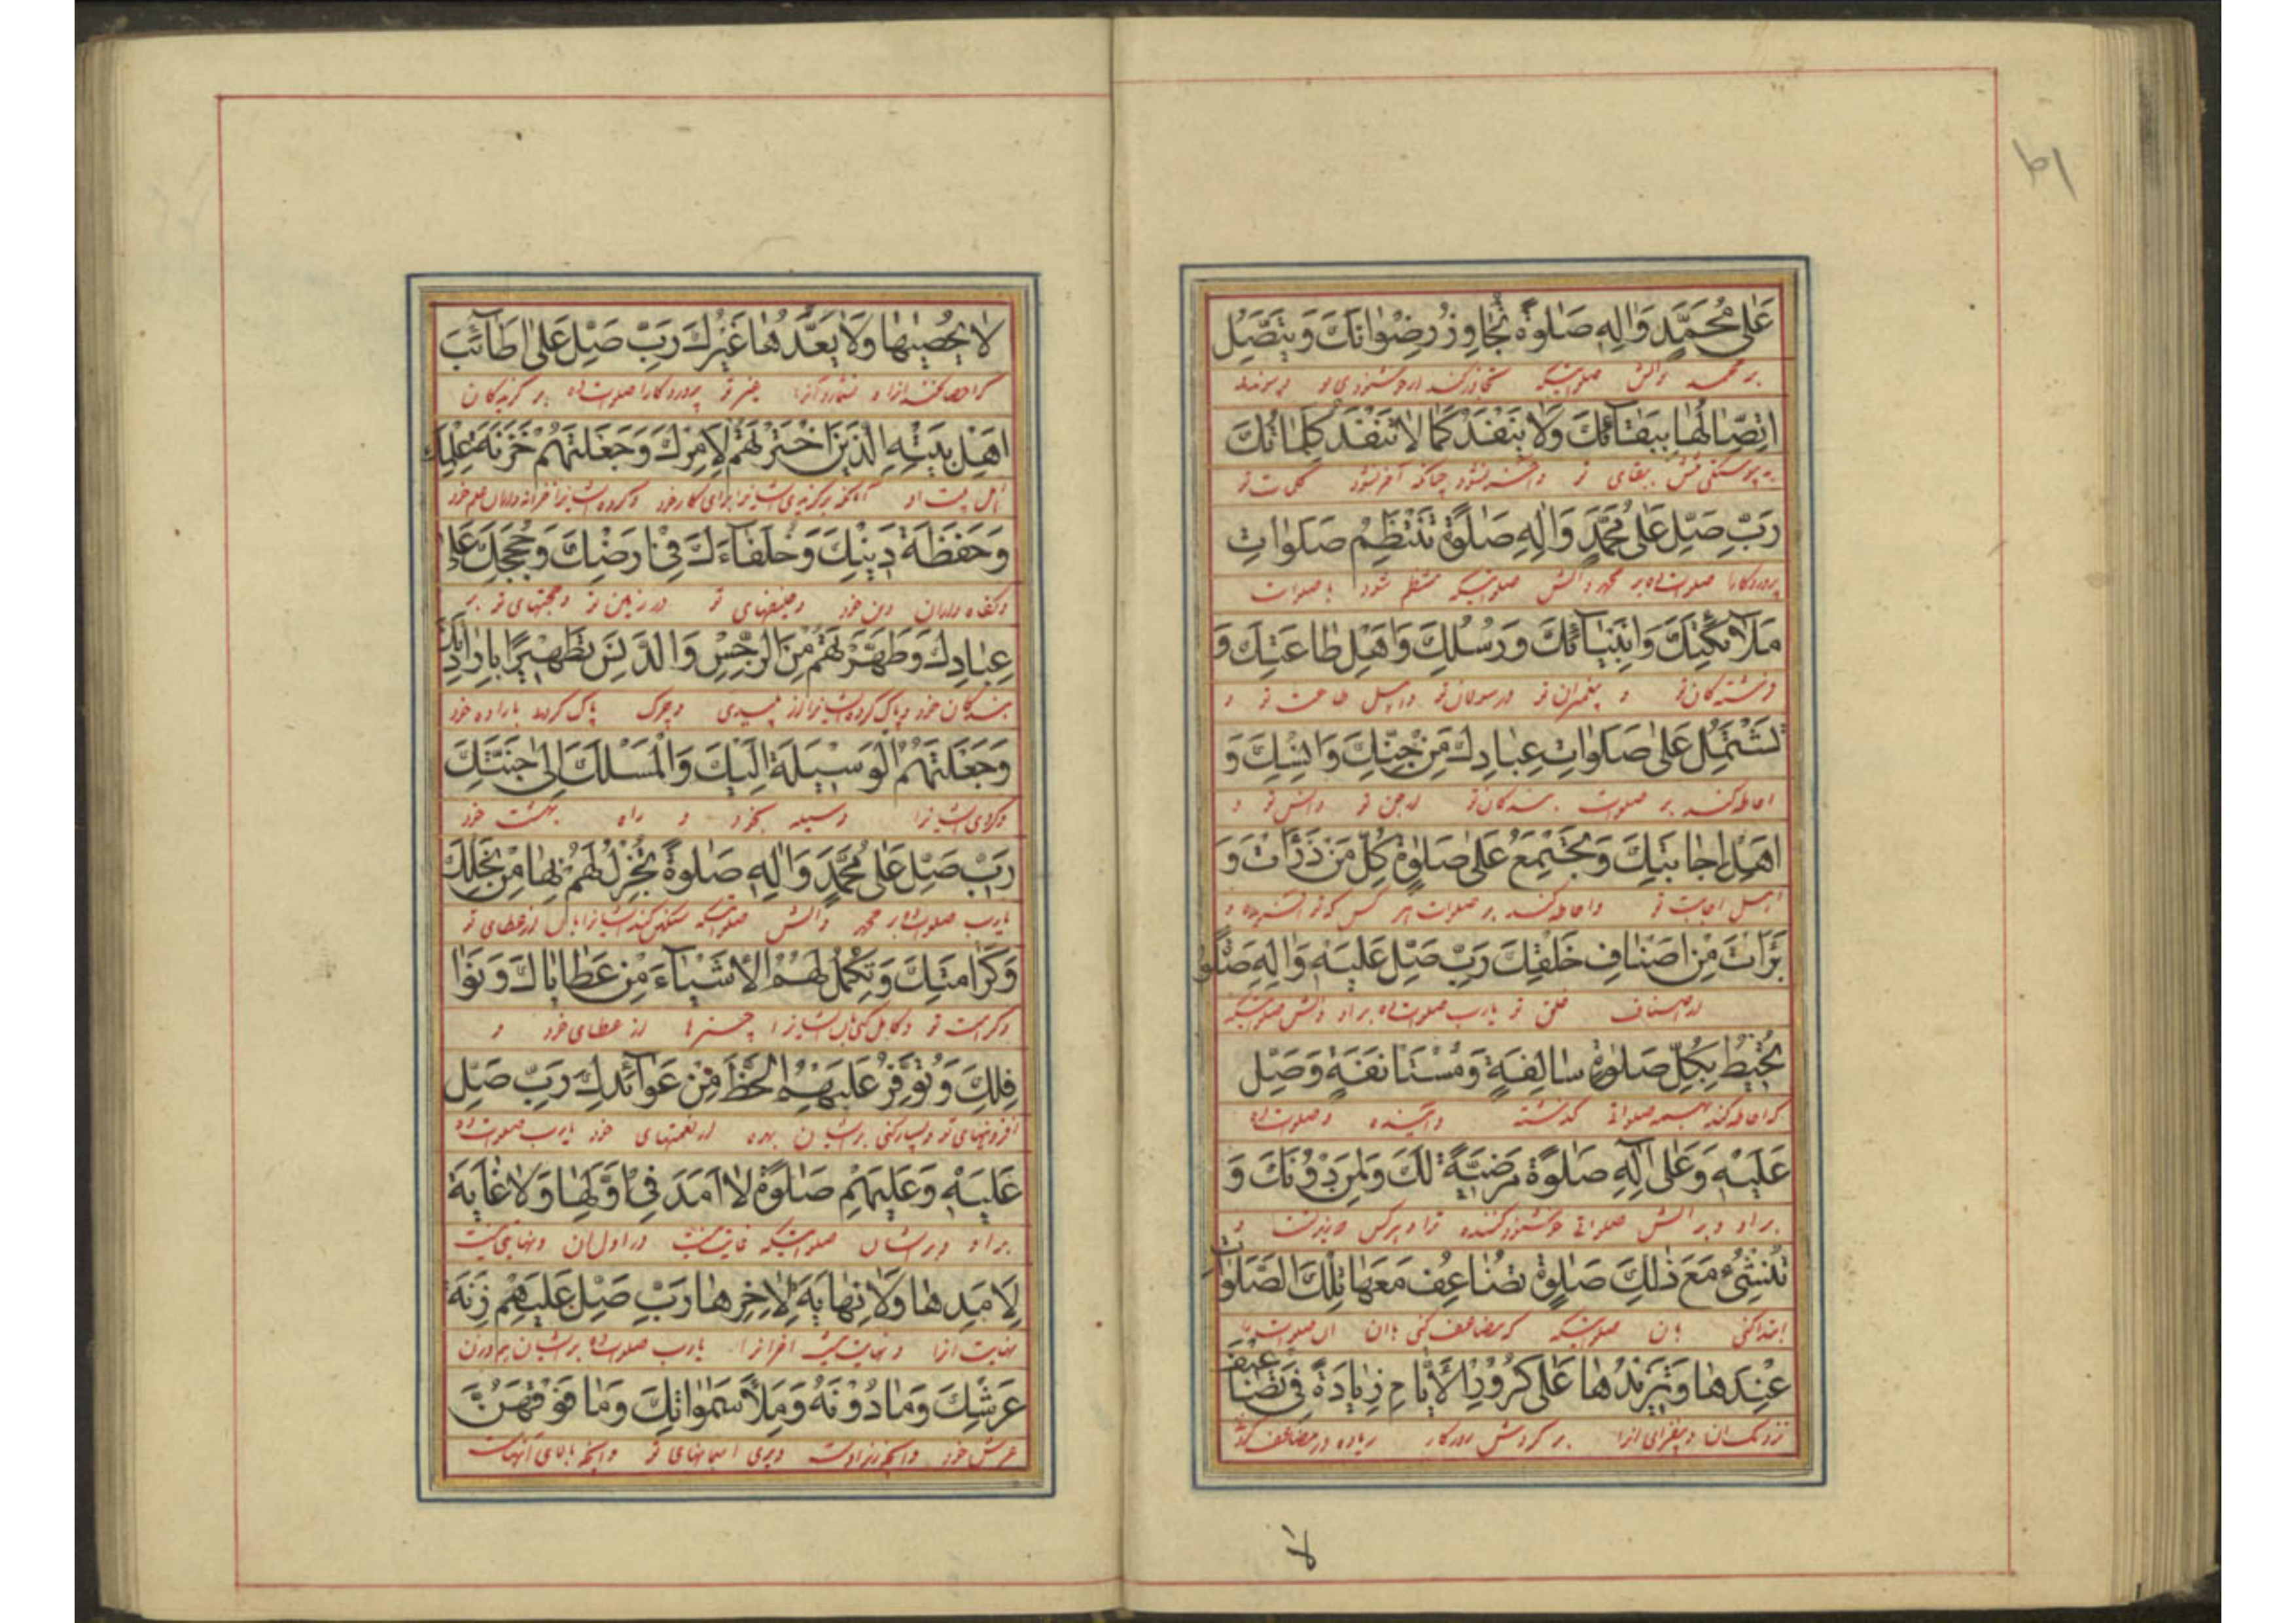 عَلىٰ مُحَمَّدٍ وَاٰلِهٖ صَلٰوةً تُجٰاوِزُ رِضْوٰانَكَ وَيَتَّصِلُ
بر محمد و آلش صلوتیکه تجاوز کند از خوشنودی تو و پیوندد
اتِّصٰالُهٰا بِبَقٰآئِكَ وَلاٰ يَنْفَدُ كَمٰا لاٰ تَنْفَدُ كَلِمٰاتُكَ
به پیوستگی بقای تو چنانکه آخر نشود کلمات تو
رَبِّ صَلِّ عَلىٰ مُحَمَّدٍ وَاٰلِهِ صَلٰوةً تَنْتَظِمُ صَلَوٰاتِ
پروردگارا صلوت ده بر محمد و آلش صلوتیکه منتظم شود با صلوات
مَلآٰئِكَتِكَ وَاَنْبِيٰآئِكَ وَرُسُلِكَ وَاَهْلِ طٰاعَتِكَ وَ
فرشته کان تو و پیغمبران تو و رسولان تو و اهل طاعت تو و
تَشْتَمِلُ عَلىٰ صَلَوٰاتِ عِبٰادِكَ مِنْ جِنِّكَ وَاِنْسِكَ وَ
احاطه کند بر صلوت بندکان تو از جن تو و انس تو و
اَهْلِ اِجٰابَتِكَ وَتَجْتَمِعُ عَلىٰ صَلٰوةِ كُلِّ مَنْ ذَرَأْتَ وَ
اهل اجابت تو و احاطه کند بر صلوات هر کس که تو آفریده و
بَرَأْتَ مِنْ اَصْنٰافِ خَلْقِكَ رَبِّ صَلِّ عَلَيْهِ وَاٰلِهِ صَلٰوةً
از اصناف خلق تو یارب صلوت ده بر او و آلش صلوتیکه
تُحيطُ بِكُلِّ صَلٰوةٍ سٰالِفَةٍ وَمُسْتَأْنَفَةٍ وَصَلِّ
که احاطه کند بهمه صلواتی گذشته و آینده و صلوت ده
عَلَيْهِ وَعَلىٰ اٰلِهِ صَلٰوةً مَرْضِيَّةً لَكَ وَلِمَنْ دُوْنَكَ وَ
بر او و بر آلش صلواتی خوشنود کننده ترا و هر کس و
تُنْشِئُ مَعَ ذٰلِكَ صَلٰوةً تُضٰاعِفُ مَعَهٰا تِلْكَ الصَّلَوٰاتِ
ابتدا کنی با آن صلوتیکه که مضاعف کنی با آن آن صلوت
عِنْدَهٰا وَتَزيْدُهٰا عَلىٰ كُرُوْرِ الْاَيّٰامِ زِيٰادَةً فى تَضٰاعيفَ
نزد آن و بیفزای آنرا بر کردش روزکار زیاده در مضاعف
لا
لاٰ يُحْصيهٰا وَلاٰ يَعُدُّهٰا غَيْرُكَ رَبِّ صَلِّ عَلىٰ اَطٰآئِبِ
که احصا نکند آنرا و نشمارد آنرا غیر تو پروردکارا صلوت ده بر کزیدکان
اَهْلِ بَيْتِهِ الَّذينَ اخْتَرْتَهُمْ لِاَمْرِكَ وَجَعَلْتَهُمْ خَزَنَةَ عِلْمِكَ
اهل بیت او آنانکه برکزیدی ایشانرا برای کار خود و کرده ایشانرا خزانه داران علم خود
وَحَفَظَةَ دينِكَ وَخُلَفٰآءَكَ فى اَرْضِكَ وَحُجَجَكَ عَلىٰ
و نکاه داران دین خود و خلیفهای تو در زمین تو و حجتهای تو بر
عِبٰادِكَ وَطَهَّرْتَهُمْ مِنَ الرِّجْسِ وَالدَّنَسِ تَطْهيرًا بِاِرٰادَتِكَ
بندکان خود و پاک کرده ایشانرا از پلیدی و چرک پاک کردنی باراده خود
وَجَعَلْتَهُمُ الْوَسيلَةَ اِلَيْكَ وَالْمَسْلَكَ اِلىٰ جَنَّتِكَ
و کردی ایشانرا وسیله بخود و راه بهشت خود
رَبِّ صَلِّ عَلىٰ مُحَمَّدٍ وَاٰلِهِ صَلٰوةً تُجْزِلُ لَهُمْ بِهٰا مِنْ نِحَلِكَ
یارب صلوت ده بر محمد و آلش صلوتیکه ایشانرا بآن از عطای تو
وَكَرٰامَتِكَ وَتُكْمِلُ لَهُمُ الْاَشْيٰاءَ مِنْ عَطٰايٰاكَ وَنَوٰا
و کرامت تو و کامل کنی بآن ایشانرا چیزها از عطای خود و
فِلِكَ وَتُوَفِّرُ عَلَيْهِمُ الْحَظَّ مِنْ عَوٰآئِدِكَ رَبِّ صَلِّ
افزونیهای تو و بسیار کنی بر ایشان بهره از نعمتهای خود یارب صلوت ده
عَلَيْهِ وَعَلَيْهِمْ صَلٰوةً لاٰ اَمَدَ فى اَوَّلِهٰا وَلاٰ غٰايَةَ
بر او و بر ایشان صلوتیکه غایت نیست در اول آن و نهایتی نیست
لِاَمَدِهٰا وَلاٰ نِهٰايَةَ لِاٰخِرِهٰا رَبِّ صَلِّ عَلَيْهِمْ زِنَةَ
نهایت آنرا و نهایت نیست آخر آنرا یارب صلوت ده بر ایشان هم وزن
عَرْشِكَ وَمٰا دُوْنَهُ وَمِلْأَ سَمٰوٰاتِكَ وَمٰا فَوْقَهُنَّ
عرش خود و آنچه زیر اوست و پری آسمانهای تو و آنچه بالای آنهاست